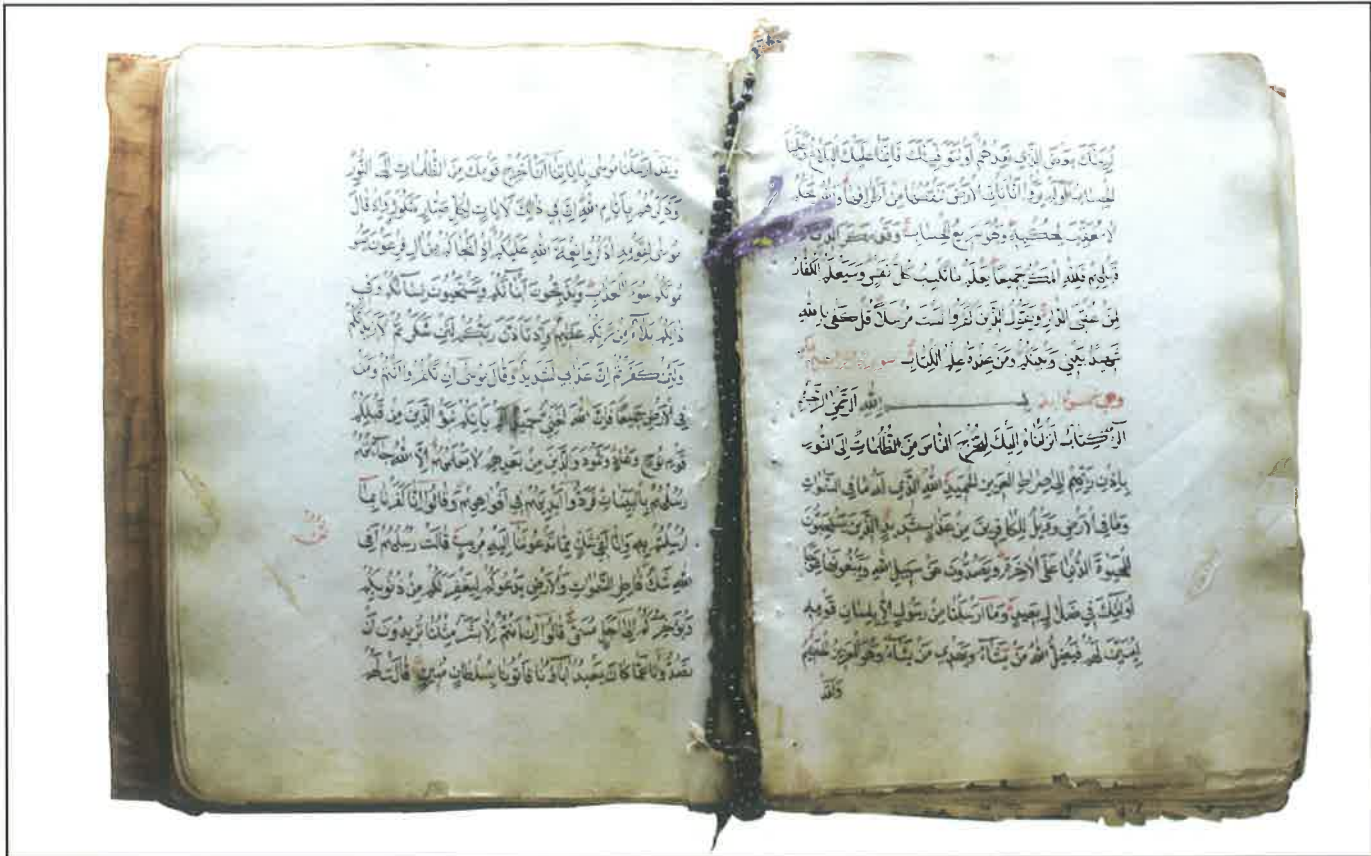 نرينك بعض الذي نعدهم أو نتوفينك فإنما عليك البلاغ وعلينا
الحساب أولم يروا أنا نأتي الأرض ننقصها من أطرافها والله يحكم
لا معقب لحكمه وهو سريع الحساب وقد مكر الذين من
قبلهم فلله المكر جميعا يعلم ما تكسب كل نفس وسيعلم الكفار
لمن عقبى الدار ويقول الذين كفروا لست مرسلا قل كفى بالله
شهيدا بيني وبينكم ومن عنده علم الكتاب سورة إبراهيم
بسم الله الرحمن الرحيم
الر كتاب أنزلناه إليك لتخرج الناس من الظلمات إلى النور
بإذن ربهم إلى صراط العزيز الحميد الله الذي له ما في السموات
وما في الأرض وويل للكافرين من عذاب شديد الذين يستحبون
الحيوة الدنيا على الآخرة ويصدون عن سبيل الله ويبغونها عوجا
أولئك في ضلال بعيد وما أرسلنا من رسول إلا بلسان قومه
ليبين لهم فيضل الله من يشاء ويهدي من يشاء وهو العزيز الحكيم
ولقد
ولقد أرسلنا موسى بآياتنا أن أخرج قومك من الظلمات إلى النور
وذكرهم بأيام الله إن في ذلك لآيات لكل صبار شكور وإذ قال
موسى لقومه اذكروا نعمة الله عليكم إذ أنجاكم من آل فرعون يسو
مونكم سوء العذاب ويذبحون أبناءكم ويستحيون نساءكم وفي
ذلكم بلاء من ربكم عظيم وإذ تأذن ربكم لئن شكرتم لأزيدنكم
ولئن كفرتم إن عذابي لشديد وقال موسى إن تكفروا أنتم ومن
في الأرض جميعا فإن الله لغني حميد ألم يأتكم نبؤ الذين من قبلكم
قوم نوح وعاد وثمود والذين من بعدهم لا يعلمهم إلا الله جاءتهم
رسلهم بالبينات فردوا أيديهم في أفواههم وقالوا إنا كفرنا بما
أرسلتم به وإنا لفي شك مما تدعوننا إليه مريب قالت رسلهم أفي
الله شك فاطر السموات والأرض يدعوكم ليغفر لكم من ذنوبكم
ويؤخركم إلى أجل مسمى قالوا إن أنتم إلا بشر مثلنا تريدون أن
تصدونا عما كان يعبد آباؤنا فأتونا بسلطان مبين قالت لهم